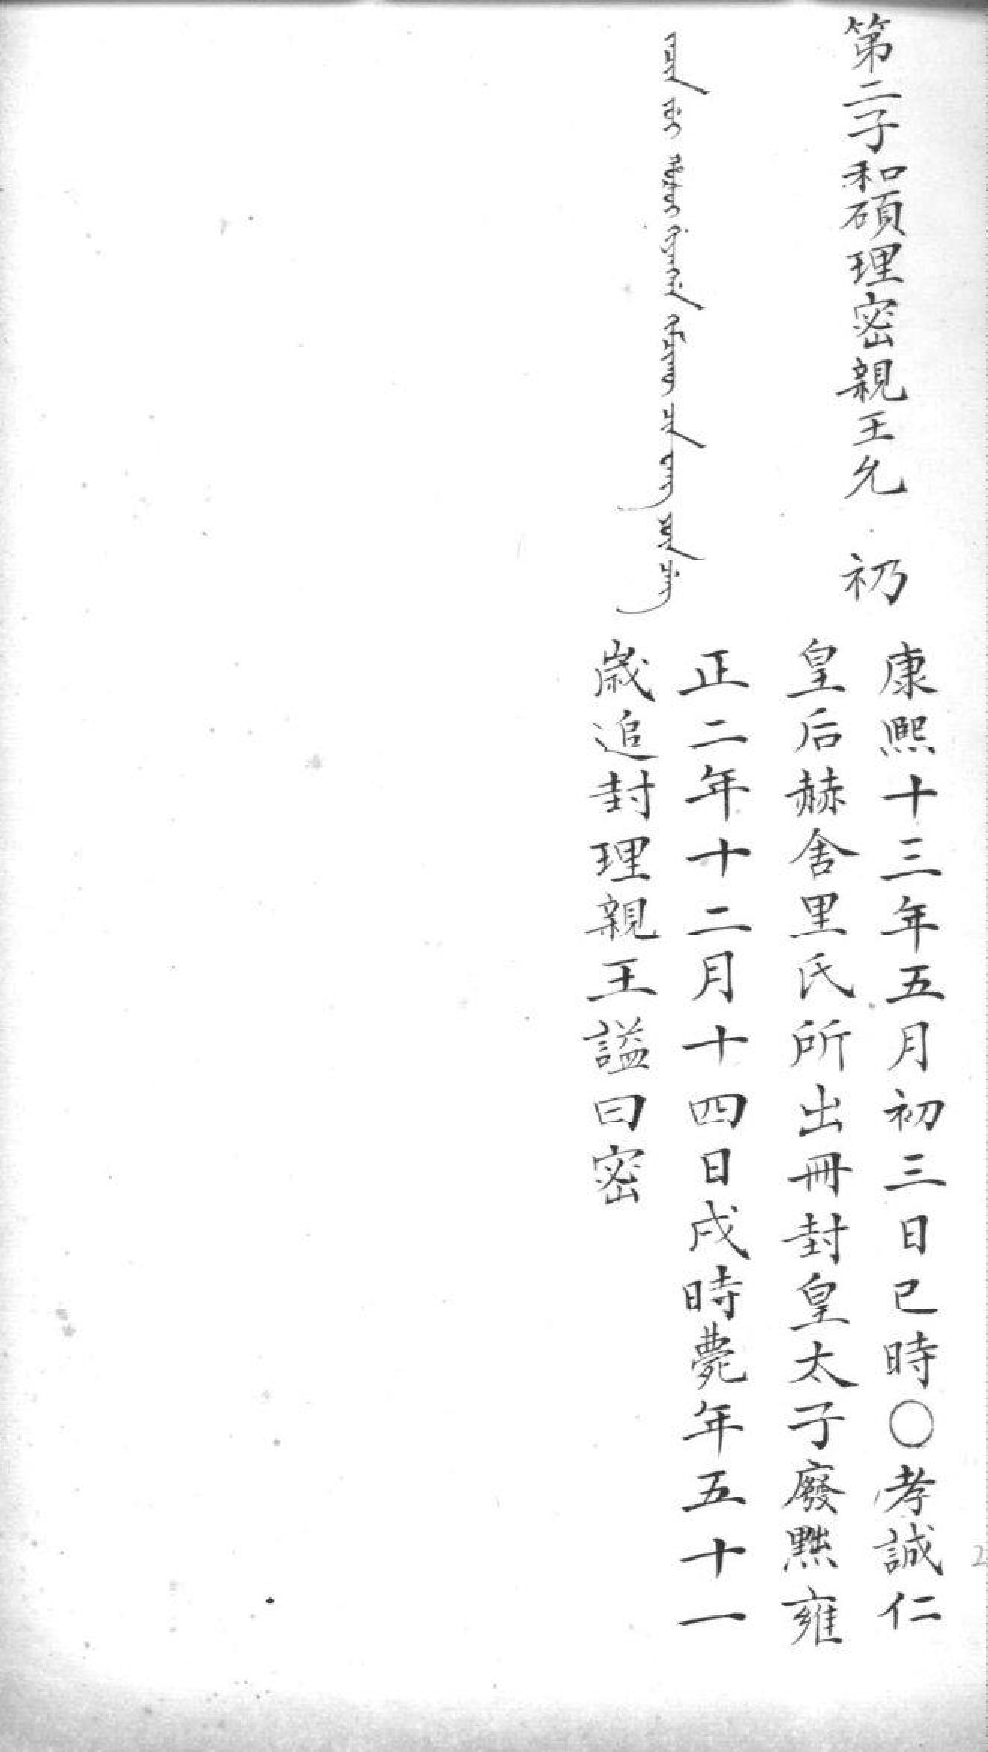 第二子和碩理密親王允礽
康熙十三年五月初三日巳時○孝誠仁
皇后赫舍里氏所出冊封皇太子廢黜雍
正二年十二月十四日戌時薨年五十一
歲追封理親王謚曰密